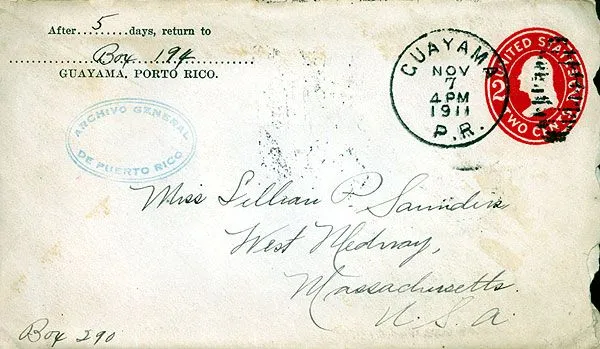 After.....5.....days, return to
Box 194
GUAYAMA, PORTO RICO.
GUAYAMA
NOV
7
4PM
1911
P.R.
UNITED STATES
2
TWO CENTS
ARCHIVO GENERAL
DE PUERTO RICO
Miss Lillian P. Saunders
West Medway,
Massachusetts.
U.S.a.
Box 290